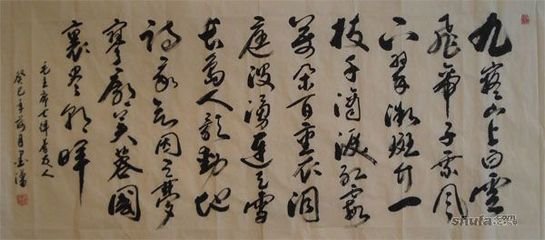 九嶷山上白雲
飛帝子乘風
下翠微斑竹一
枝千滴淚紅霞
萬朵百重衣洞
庭波湧連天雪
長島人歌動地
詩我欲因之夢
寥廓芙蓉國
裏盡朝暉
毛主席七律答友人
癸巳年 月墨
shufa.com